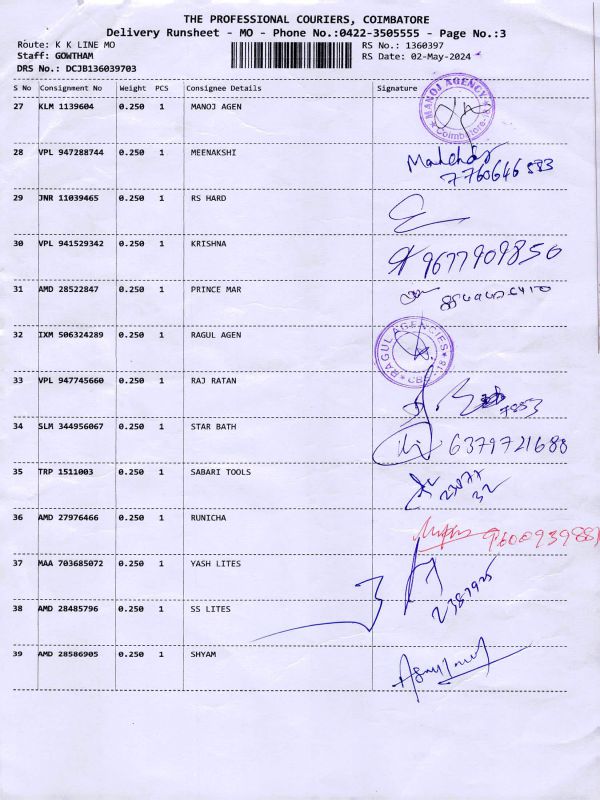 THE PROFESSIONAL COURIERS, COIMBATORE
Delivery Runsheet - MO - Phone No.:0422-3505555 - Page No.:3
Route: K K LINE MO
RS No.: 1360397
Staff: GOWTHAM
RS Date: 02-May-2024
DRS No.: DCJB136039703
S No Consignment No Weight PCS Consignee Details Signature
27 KLM 1139604 0.250 1 MANOJ AGEN
MANOJ AGENCY
28 VPL 947288744 0.250 1 MEENAKSHI
7760646583
29 JNR 11039465 0.250 1 RS HARD
30 VPL 941529342 0.250 1 KRISHNA 9677909850
31 AMD 28522847 0.250 1 PRINCE MAR
32 IXM 506324289 0.250 1 RAGUL AGEN
RAGUL AGENCIES
CBE-18
33 VPL 947745660 0.250 1 RAJ RATAN
7853
34 SLM 344956067 0.250 1 STAR BATH 6379721688
35 TRP 1511003 0.250 1 SABARI TOOLS
32
36 AMD 27976466 0.250 1 RUNICHA
37 MAA 703685072 0.250 1 YASH LITES
38 AMD 28485796 0.250 1 SS LITES
39 AMD 28586905 0.250 1 SHYAM